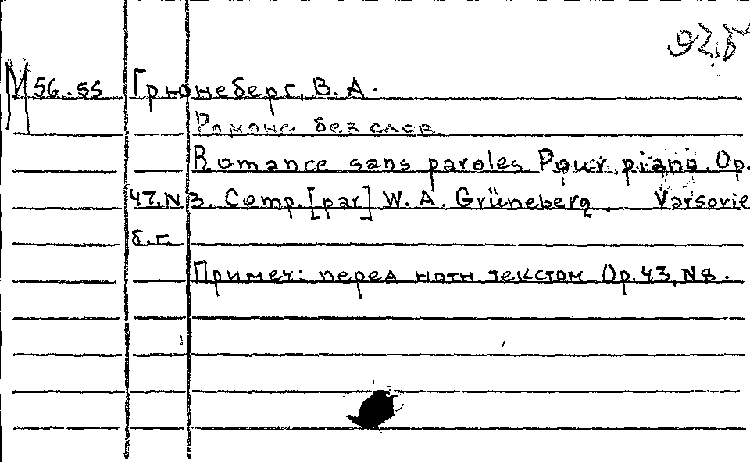 М 56.55 Грюнеберг, В. А.
Романс без слов
Romance sans paroles Pour piano. Op.
47, N 3. Comp. [par] W. A. Grüneberg. Varsovie
б. г.
Примеч: перед нотн текстом Op. 43, N 8.